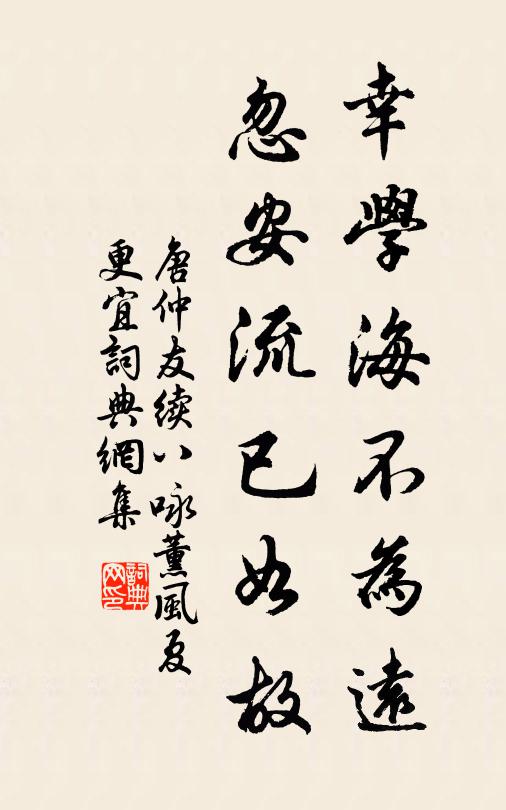 幸學海不為遠
忽安流已如故
唐仲友續八咏薰風夏
更宜詞典網集
詞典網印